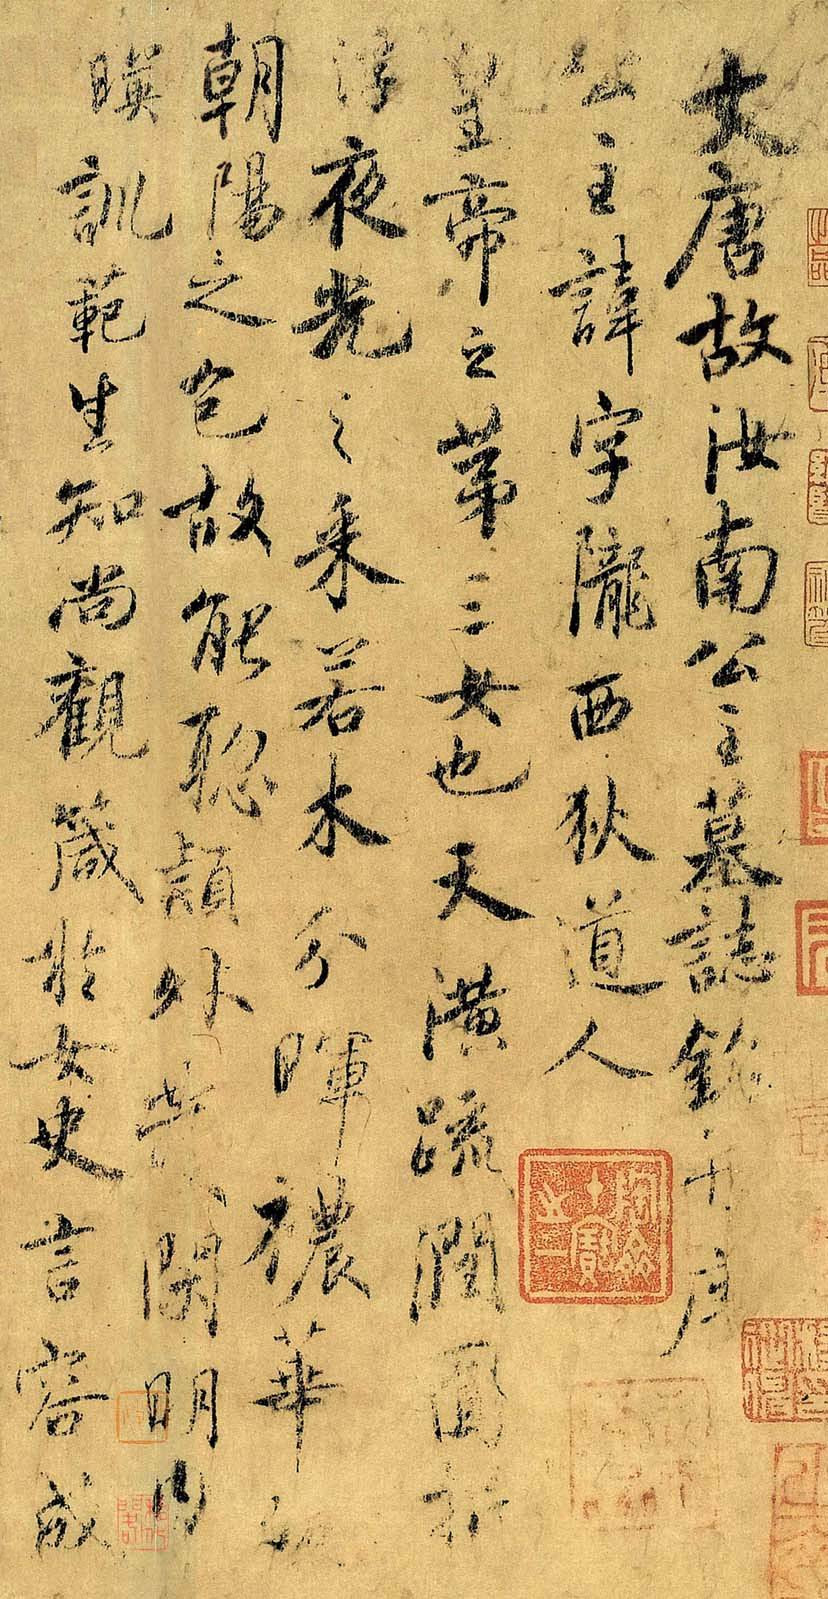 大唐故汝南公主墓誌銘并序
公主諱字隴西狄道人
皇帝之第三女也天潢疏潤圓折
浮夜光之采若木分暉穠華照
朝陽之色故能聡頴外發閑明內
暎訓範生知尚觀箴於女史言容成